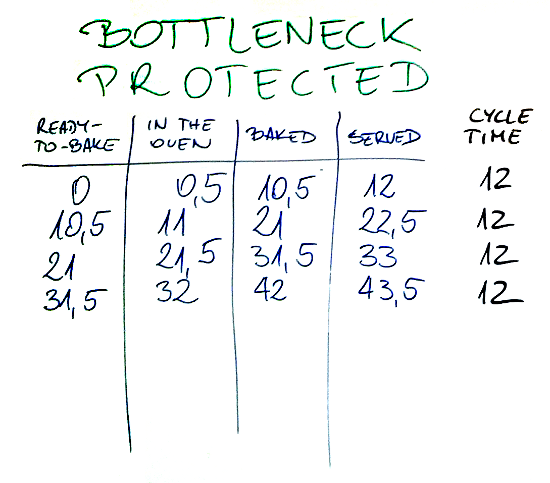 BOTTLENECK
PROTECTED
READY-TO-BAKE IN THE OVEN BAKED SERVED CYCLE TIME
0 0,5 10,5 12 12
10,5 11 21 22,5 12
21 21,5 31,5 33 12
31,5 32 42 43,5 12